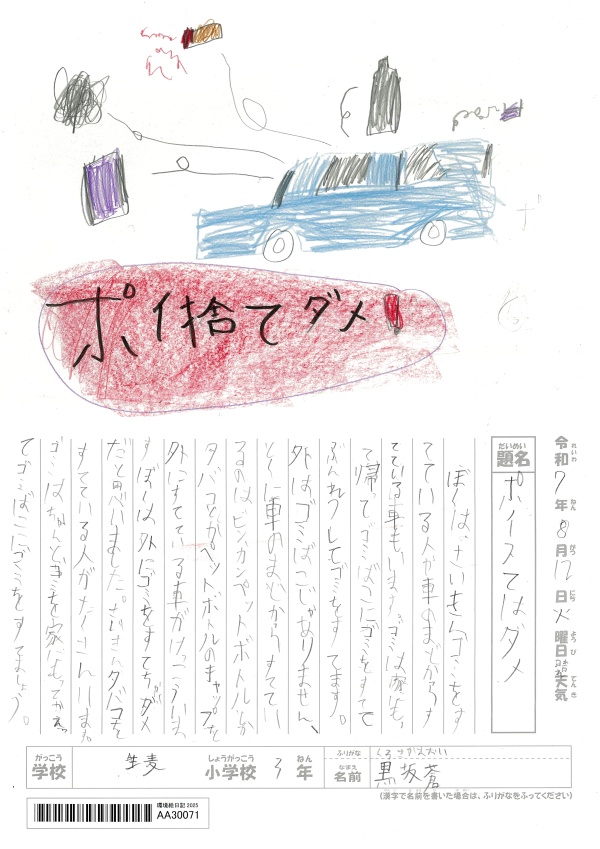 ポイ捨てダメ!
令和7年8月12日火曜日 天気
れいわ ねん がつ にち ようび てんき
だいめい
題名 ポイステはダメ
ぼくは、さいきんゴミをす
てている人が車のまどからす
てている車もいます。ゴミは家にも
って帰ってゴミばこにゴミをすてて
ぶんれつしてゴミをすててます。
外はゴミばこじゃありません、
とくに車のまどからすててい
るのはビンカンペットボトルとか
タバコとかペットボトルのキャップを
外にすてている車がけっこういま
すぼくは外にゴミをすてちゃダメ
だと思いました。さいきんタバコを
すてている人がたくさんいます。
ゴミはちゃんとゴミを家にもってかえっ
てゴミばこにゴミをすてましょう。
がっこう しょうがっこう ねん ふりがな くろさかあおい
学校 生麦 小学校 3年 なまえ 名前 黒坂蒼
(漢字で名前を書いた場合は、ふりがなをふってください)
環境絵日記2025
AA30071